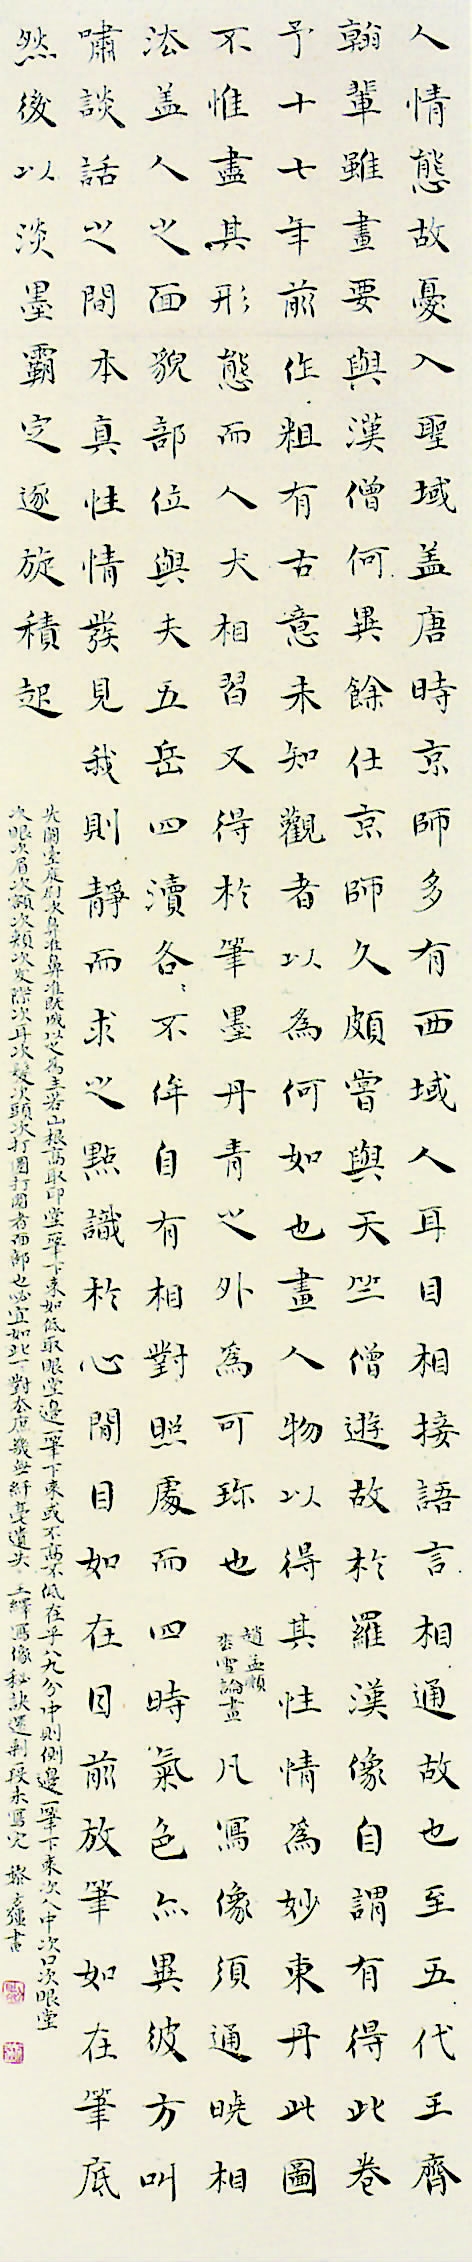 人情態故憂入聖域盖唐時京師多有西域人耳目相接語言相通故也至五代王齊
翰輩雖畫要與漢僧何異餘仕京師久頗嘗與天竺僧遊故於羅漢像自謂有得此卷
予十七年前作粗有古意未知觀者以為何如也畫人物以得其性情為妙東丹此圖
不惟盡其形態而人犬相習又得於筆墨丹青之外為可珎也
趙孟頫
松雪論畫
凡寫像須通曉相
法盖人之面貌部位與夫五岳四瀆各〻不侔自有相對照處而四時氣色亦異彼方叫
嘯談話之間本真性情發見我則靜而求之默識於心閒目如在目前放筆如在筆底
然後以淡墨霸定逐旋積起
先蘭臺庭尉次鼻準鼻準既成以之為主若山根高取印堂一筆下來如低取眼堂邊一筆下來或不高不低在乎八九分中則側邊一筆下來次人中次口次眼堂
次眼次眉次額次頰次髮際次耳次髮次頭次打圈打圈者面部也必宜如此一一對去庶幾無纖毫遺失 王繹寫像秘訣還剩一段未寫完
書